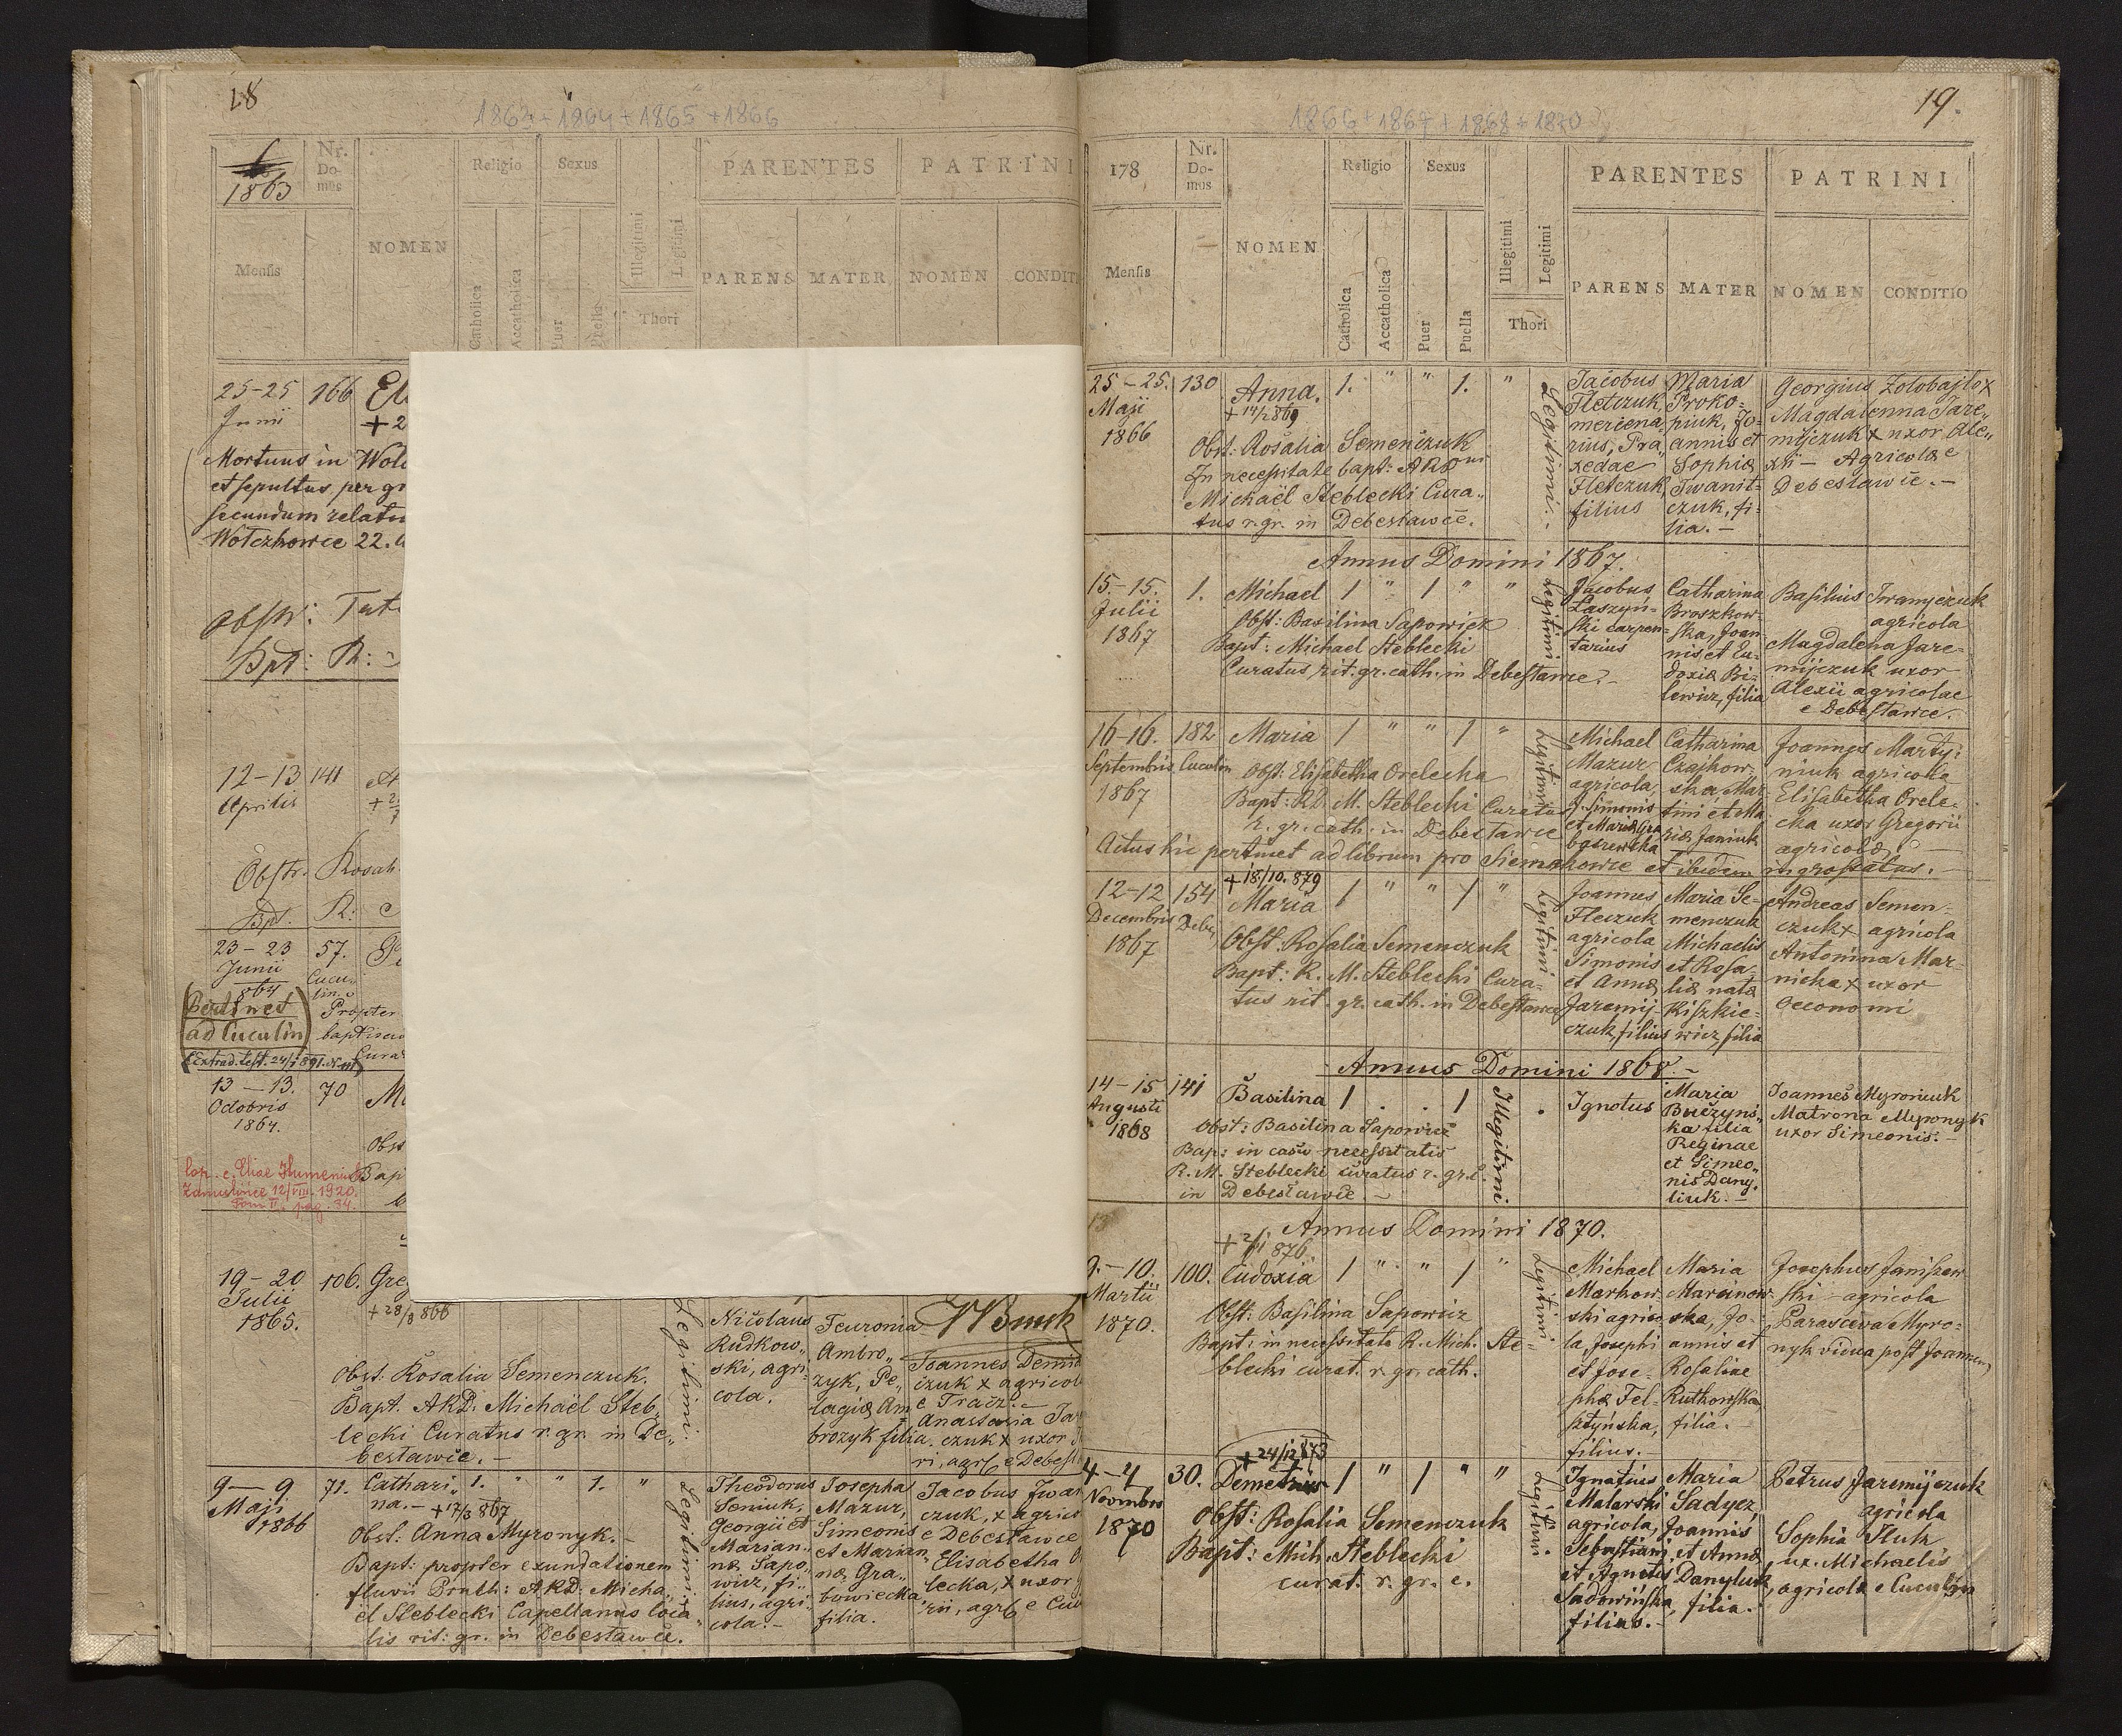 18
1863 + 1864 + 1865 + 1866
1863
Nr. Domus
NOMEN
Religio
Sexus
PARENTES
PATRINI
Mensis
Catholica
Accatholica
Puer
Puella
Illegitimi
Legitimi
Thori
PARENS
MATER
NOMEN
CONDIT
25-25
166
Junii
+2
Mortuus in
et sepultus per
secundum
22.
Obstr:
Bpt: R:
12-13
141
Aprilis
Obstr.
Bpt. R:
23-23
57.
Junii
864
Cucu„
lin.
(Pertinet
ad Cuculin)
Propter
(Extrad. test. 24/
13-13.
70
Octobris
1864.
Obst
Bap
12/VIII. 1920.
Tom II. pag. 34.
19-20
106.
Gre
Julii
1865.
+28/3 866
Obst. Rosalia Semenczuk.
Bapt. ARD. Michaël Steb„
lecki Curatus r. gr. in De„
bestawce.-
Legitimi.
Nicolaus
Rudkow„
ski, agri„
cola.
Feuronia
Ambro„
zyk, Pe„
lagiæ Am„
brozyk filia.
Joannes
czuk x agricol
e Tracz.-
Anastasia
czuk x uxor
ri, agr
9-9
71.
Maji
1866
Cathari„
na.-
+17/3 867
1. " " 1. "
Obst. Anna Myronyk.-
Bapt: propter exundationem
fluvii Pruth: ARD: Micha„
el Steblecki Capellanus loca„
lis rit: gr. in Debestawce.
Legitimi
Theodorus
Semiuk,
Georgii et
Marian„
næ Sapo„
wicz, fi„
lius, agri„
cola.-
Josepha
Mazur,
Simeonis
et Marian„
næ Gra„
bowiecka
filia.
Jacobus
czuk, x agrico
e Debestawce
Elisabetha
lecka, x uxor
rii,
19.
1866 + 1867 + 1868 + 1870
178
Nr. Domus
NOMEN
Religio
Sexus
PARENTES
PATRINI
Mensis
Catholica
Accatholica
Puer
Puella
Illegitimi
Legitimi
Thori
PARENS
MATER
NOMEN
CONDITIO
25-25.
130
Maji
1866
Anna.
1. " " 1. "
Obst: Rosalia Semenczuk
In necessitate bapt: ARD
Michaël Steblecki Cura„
tus r. gr. in Debestawce.
Legitimi.-
Jacobus
Fletczuk,
mercena„
rius, Pra„
xedae
Fletczuk,
filius
Maria
Proko„
piuk, Jo„
annis et
Sophiæ
Iwanit„
czuk, fi„
lia.-
Georgius Zolobajlo x
Magdalenna Jare„
mijczuk x uxor Ale„
xii - Agricolæ e
Debestawce.-
Annus Domini 1867.
15-15.
1.
Julii
1867
Michael
1 " 1 " "
Obst: Basilina Sapowicz
Bapt: Michael Steblecki
Curatus rit. gr. cath. in Debestawce.-
Legitimi
Jacobus
Łaszyń-
ski carpen-
tarius
Catharina
Broszkow-
ska, Joan-
nis et Eu-
doxiæ Bi-
lewicz, filia
Basilius Iwanyczuk
agricola
Magdalena Jare-
mijczuk uxor
Alexii agricolae
e Debestawce.
16-16.
182
Septembris
Cuculin
1867
Maria
1 " " 1 "
Obst: Elisabetha Orelecka
Bapt: RD. M. Steblecki Curatus
r. gr. cath. in Debestawce
Legitimi
Michael
Mazur
agricola,
f. Simonis
et Mariæ
Catharina
Czajkow-
ska, Mar-
tini et Ma-
riæ Janiuk
Joannes Marty-
niuk agricola
Elisabetha Orele-
cka uxor Gregorii
agricolæ
Actus hic pertinet ad librum pro Siemakowce et ibidem ingrossatus.-
12-12
154
Decembris
Debe
1867
+18/10.879
Maria
1 " " 1 "
Obst: Rosalia Semenczuk
Bapt: R. M. Steblecki Cura-
tus rit. gr. cath. in Debestawce
Legitimi
Joannes
Fleczuk
agricola
Simonis
et Annæ
Jaremij-
czuk, filius
Maria Se-
menczuk
Michaelis
et Rosa-
liæ natæ
Kiszkie-
wicz, filia
Andreas Semen-
czuk x agricola
Antonina Mar-
nicka x uxor
oeconomi
Annus Domini 1868.-
14-15
141
Augusti
1868
Basilina
1 . . 1
Obst: Basilina Sapowicz
Bap: in casu necessitatis
R. M. Steblecki curatus r. gr. c.
in Debestawce.-
Illegitimi
Ignotus
Maria
Buczyńs„
ka filia
Reginae
et Simeo„
nis Dany„
liuk.-
Joannes Myroniuk
Matrona Myronyk
uxor Simeonis.-
Annus Domini 1870.
9.-10.
100.
Martii
1870.
Eudoxia
1 " " 1 "
Obst: Basilina Sapowicz
Bapt: in necessitate R. Mich. Ste-
blecki curat. r. gr. cath.
Legitimi
Michael
Markow-
ski agrico-
la, Josephi
et Jose-
phæ Fel-
sztyńska,
filius.-
Maria
Marcinow-
ska, Jo-
annis et
Rosaliae
Rutkowska
filia.-
Josephus Janiszew
ski - agricola
Parascewa Myro-
nyk vidua post Joannem
4-4
30.
Novembris
1870
+24/12 873
Demetrius
1 " 1 " "
Obst: Rosalia Semenczuk
Bapt: Mich. Steblecki
curat. r. gr. c.
Legitimi
Ignatius
Malarski
agricola,
Sebastiani
et Agnetis
Sadowińska,
filius.-
Maria
Sadyez,
Joannis
et Annæ
Danyluk,
filia.-
Petrus Jaremijczuk
agricola
Sophia Tluk
ux. Michaelis
agricolæ e Cuculin